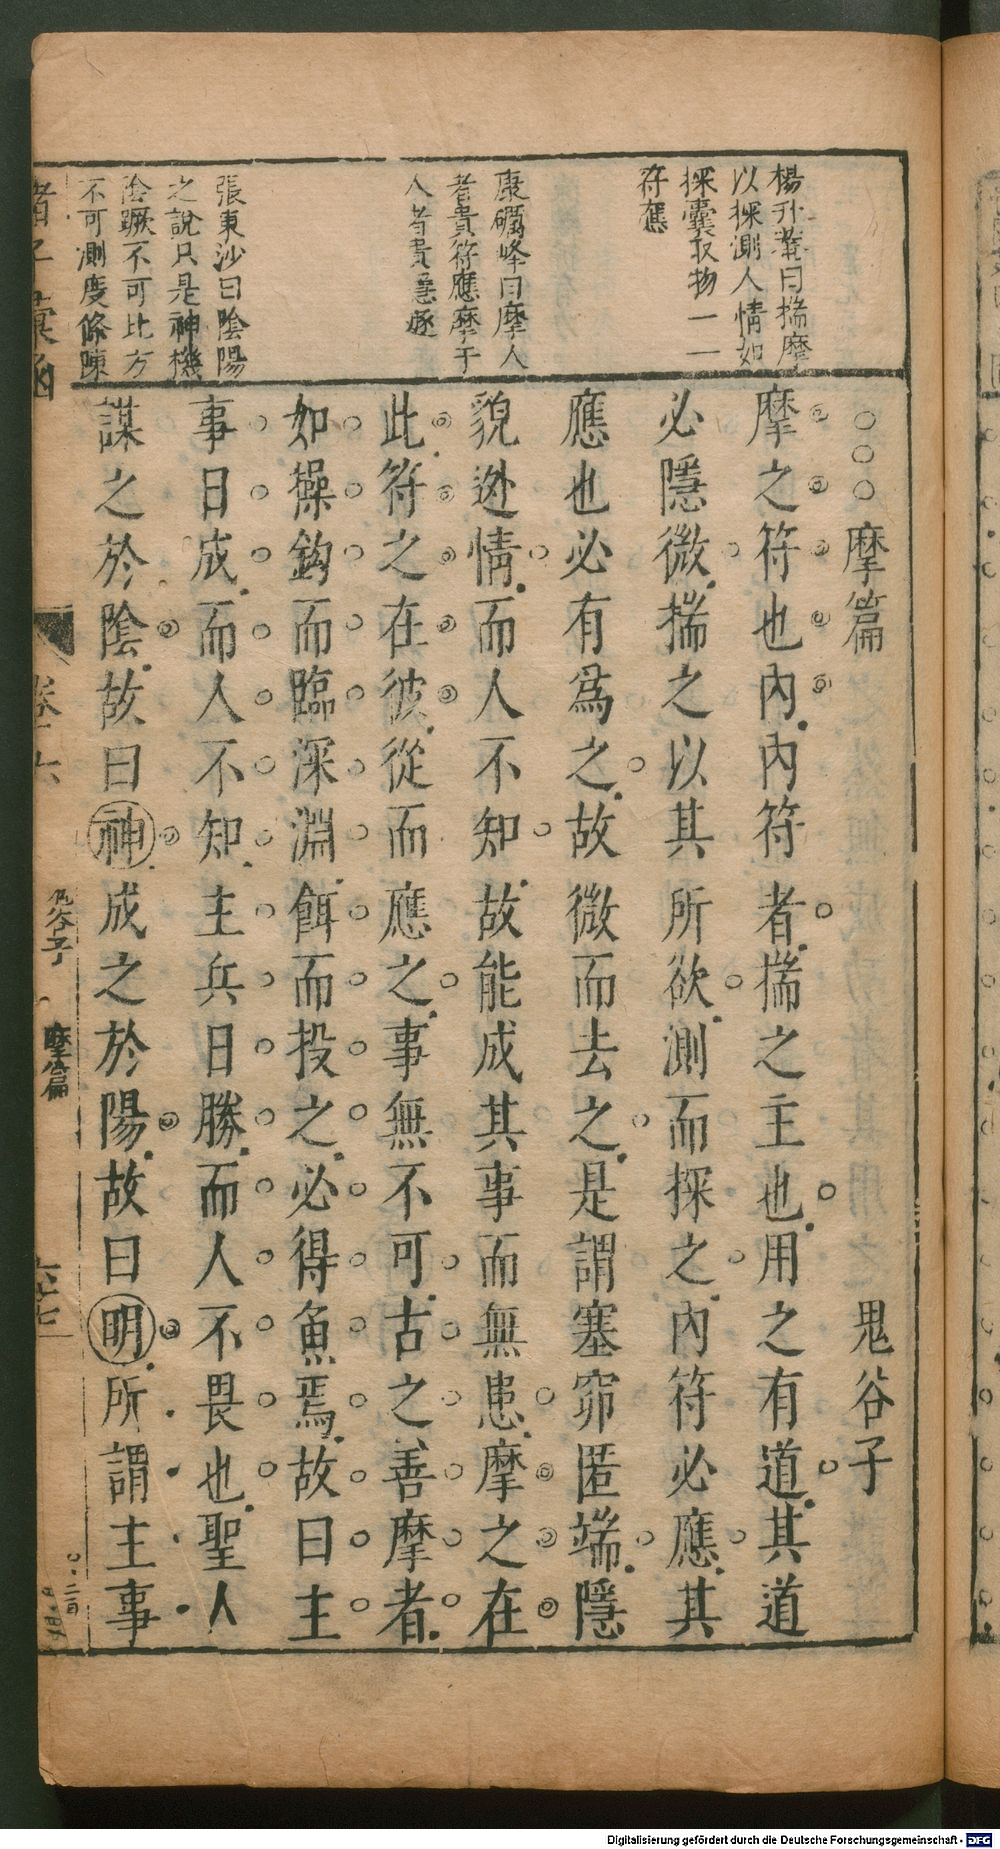 楊升菴曰揣摩
以探測人情如
探囊取物一一
存舊
康礪峰曰摩人
者貴符應摩于
人者貴隱逐
張東沙曰陰陽
之說只是神機
陰蹶不可比方
不可測度條陳
摩篇 鬼谷子
摩之符也內內符者揣之主也用之有道其道
必隱微揣之以其所欲測而探之內符必應其
應也必有爲之故微而去之是謂塞窌匿端隱
貌逃情而人不知故能成其事而無患摩之在
此符之在彼從而應之事無不可古之善摩者
如操鈎而臨深淵餌而投之必得魚焉故曰主
事日成而人不知主兵日勝而人不畏也聖人
謀之於陰故曰神成之於陽故曰明所謂主事
諸子彙函
谷子 摩篇
Digitalisierung gefördert durch die Deutsche Forschungsgemeinschaft - DFG